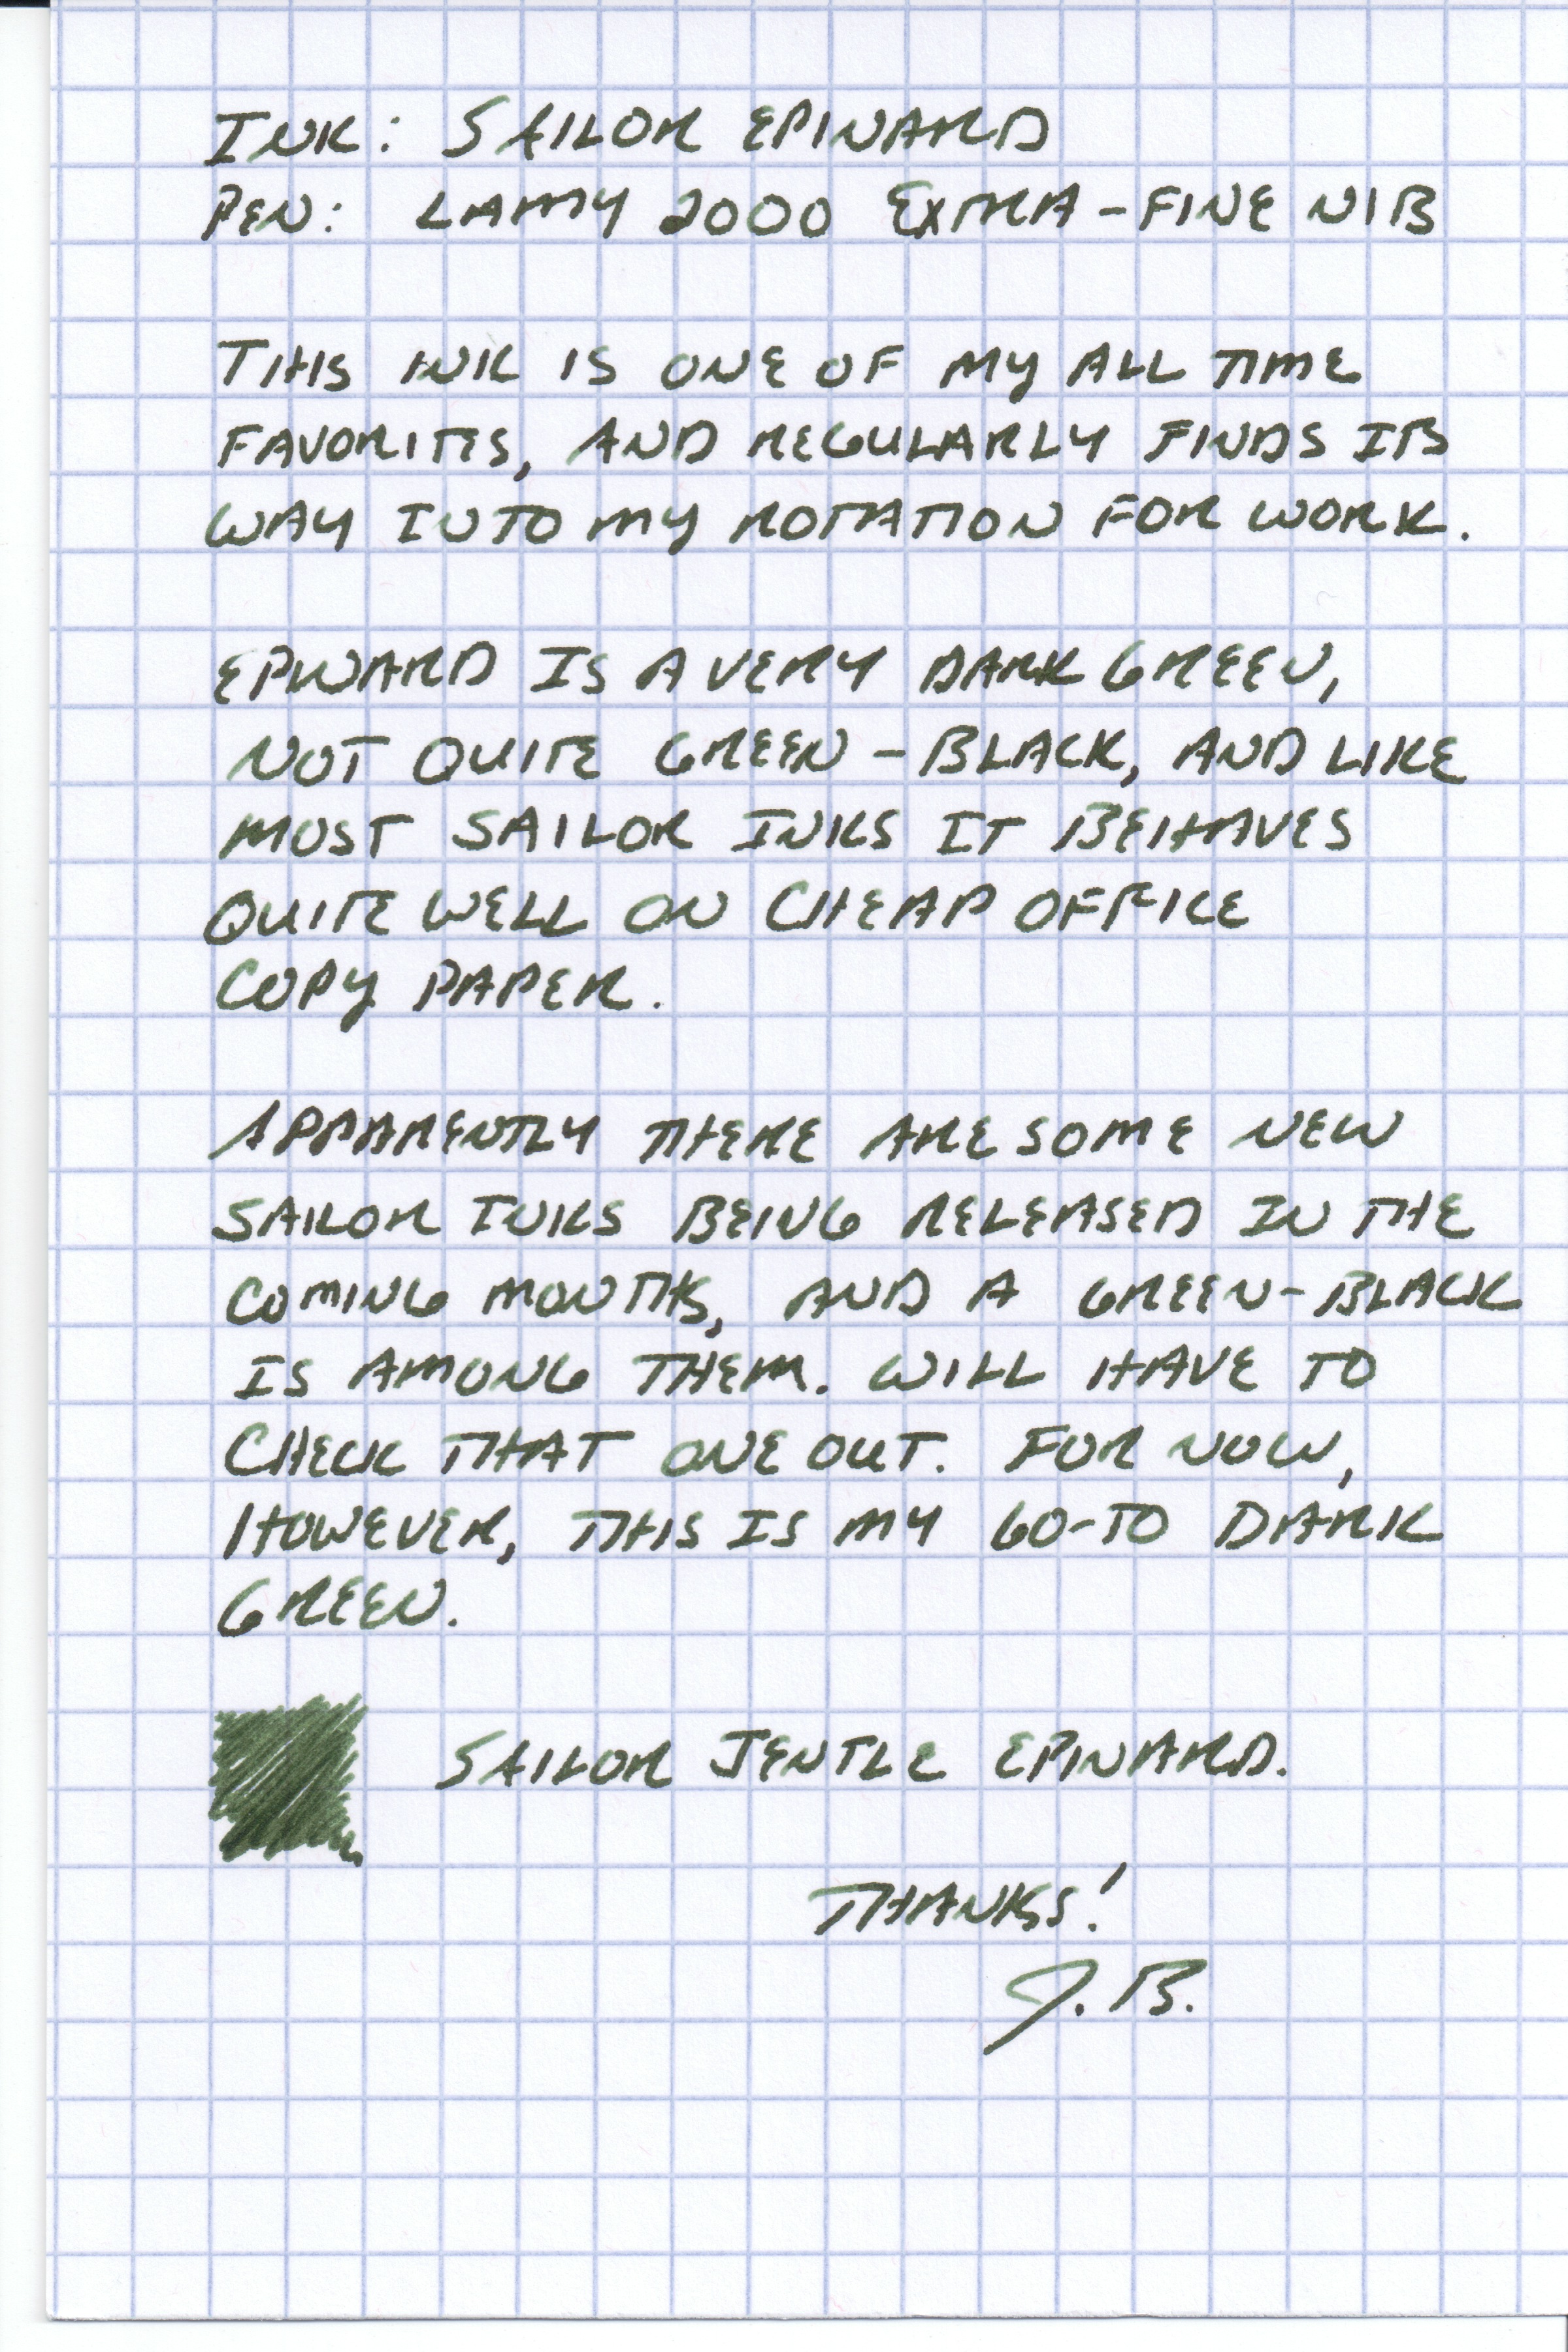 INK: SAILOR EPINARD
PEN: LAMY 2000 EXTRA-FINE NIB
THIS INK IS ONE OF MY ALL TIME
FAVORITES, AND REGULARLY FINDS ITS
WAY INTO MY ROTATION FOR WORK.
EPINARD IS A VERY DARK GREEN,
NOT QUITE GREEN-BLACK, AND LIKE
MOST SAILOR INKS IT BEHAVES
QUITE WELL ON CHEAP OFFICE
COPY PAPER.
APPARENTLY THERE ARE SOME NEW
SAILOR INKS BEING RELEASED IN THE
COMING MONTHS, AND A GREEN-BLACK
IS AMONG THEM. WILL HAVE TO
CHECK THAT ONE OUT. FOR NOW,
HOWEVER, THIS IS MY GO-TO DARK
GREEN.
SAILOR JENTLE EPINARD.
THANKS!
J.B.